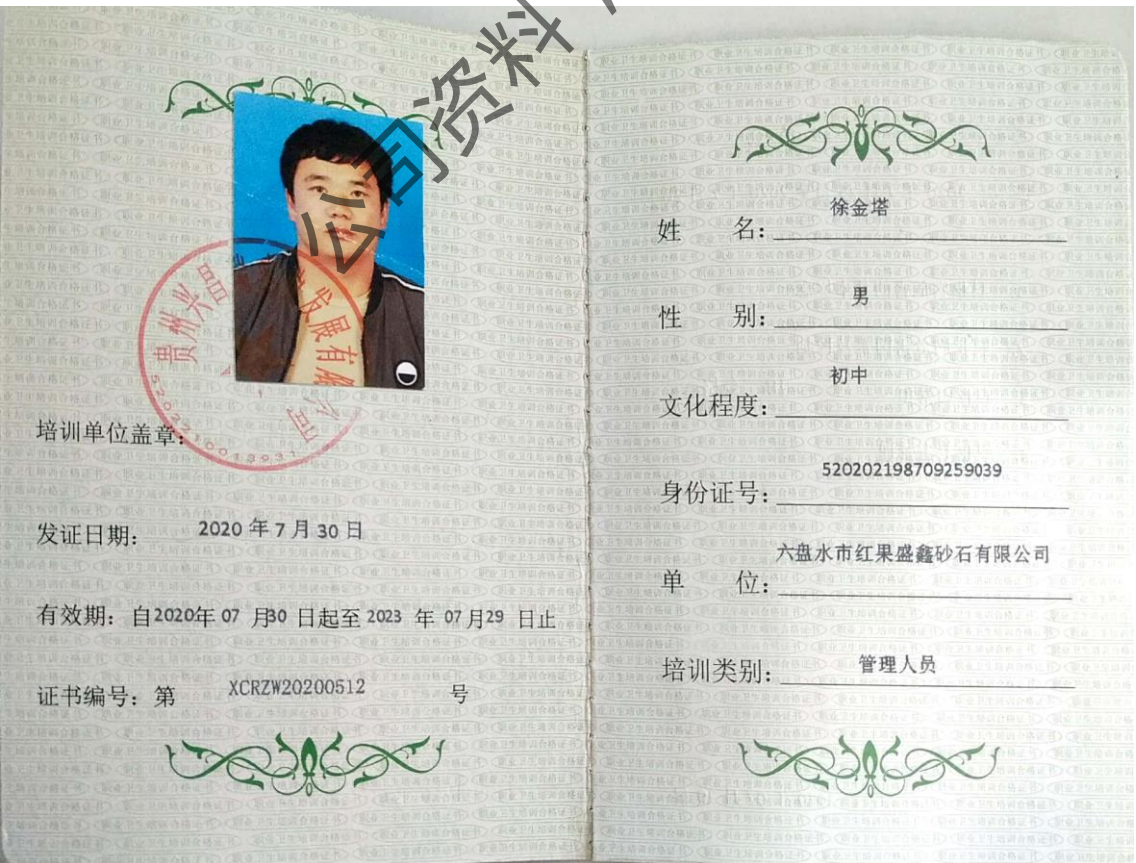 公司资料
贵州兴
发展有限公司
培训单位盖章:
发证日期: 2020 年 7 月 30 日
有效期: 自2020年 07 月30 日起至 2023 年 07月29 日止
证书编号: 第 XCRZW20200512 号
徐金塔
姓 名:
男
性 别:
初中
文化程度:
520202198709259039
身份证号:
六盘水市红果盛鑫砂石有限公司
单 位:
培训类别: 管理人员